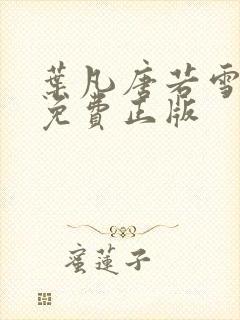 葉凡唐若雪
免費正版
蜜蓮子